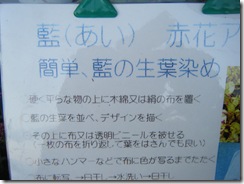 藍(あい) 赤花ア
簡単、藍の生葉染め
硬く平らな物の上に木綿又は絹の布を置く
藍の生葉を並べ、デザインを描く
その上に布又は透明ビニールを被せる
(一枚の布を折り返して葉をはさんでも良い)
小さなハンマーなどで布に色が写るまでたたく
布に転写→日干し→水洗い→日干し